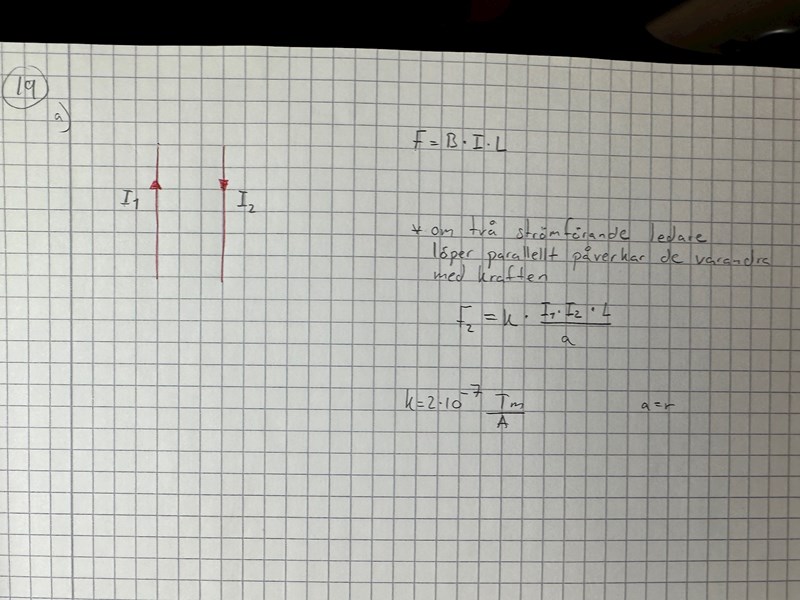 19
a)
I₁
I₂
F = B · I · L
* om två strömförande ledare
löper parallellt påverkar de varandra
med kraften
F₂ = k · I₁ · I₂ · L / a
k = 2 · 10⁻⁷ Tm / A
a = r